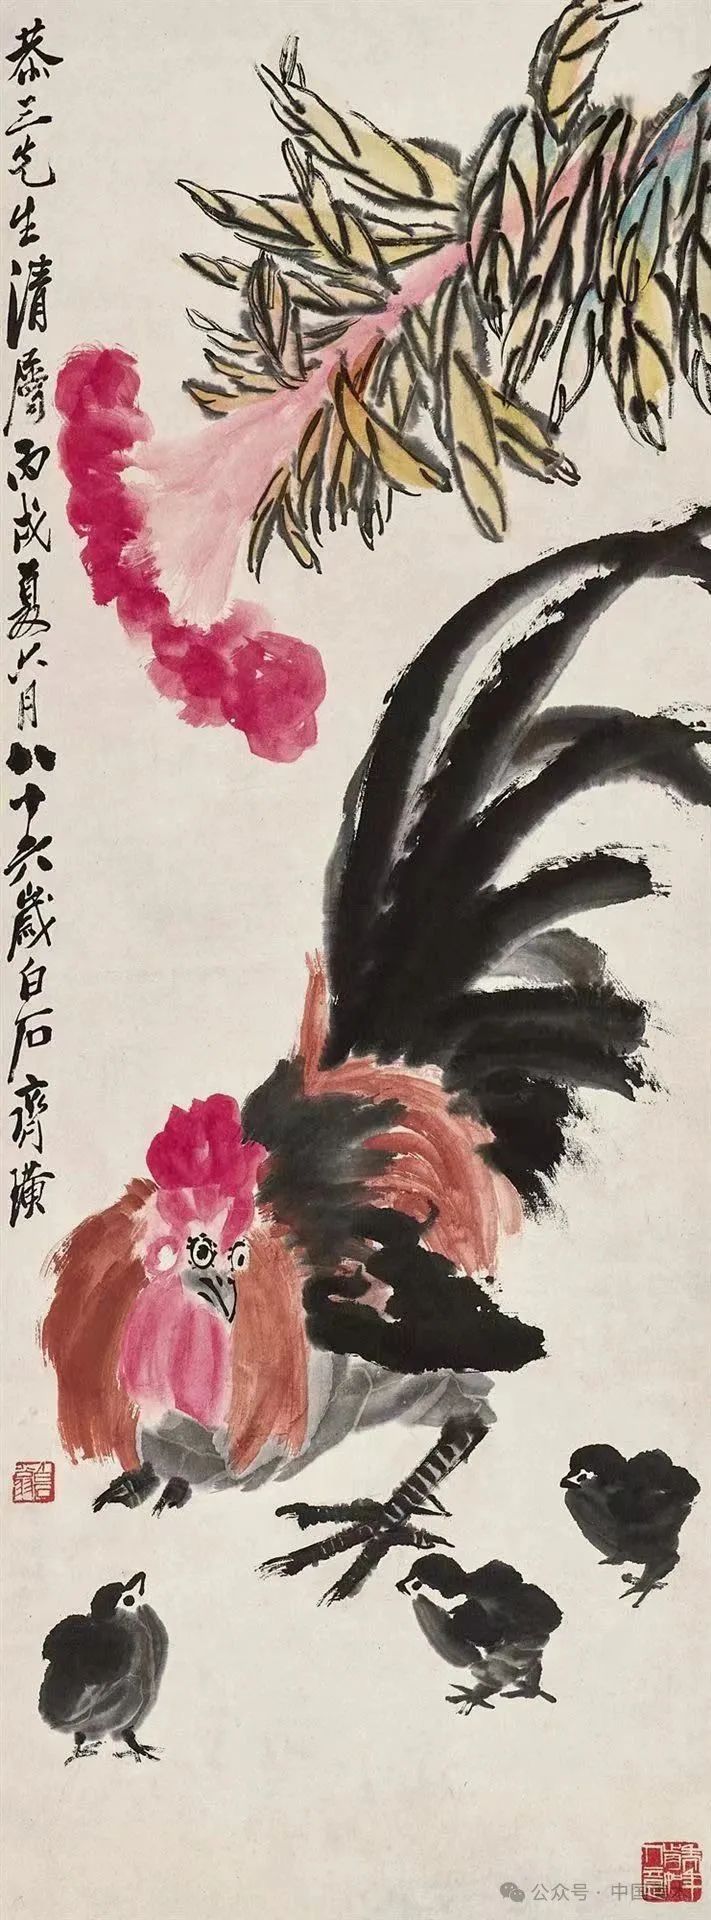 恭三先生清属丙戌夏六月八十六岁白石齐璜
公众号·中国美术